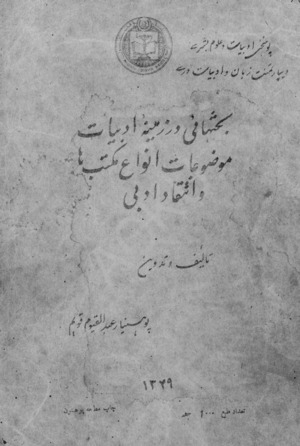 پوهنځی ادبیات و علوم بشری
دیپارتمنت زبان و ادبیات دری
بحثهائی در زمینهٔ ادبیات
موضوعات انواع مکتب ها
و انتقاد ادبی
تالیف و تدوین
پوهنیار عبدالقیوم قویم
۱۳۴۹
تعداد طبع ۱۰۰۰ جلد
چاپ